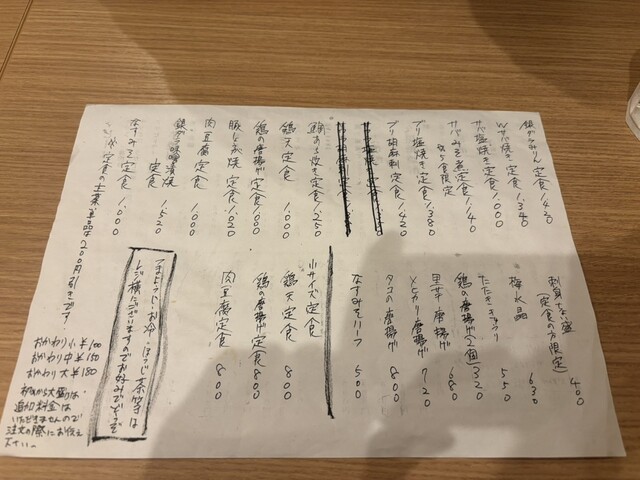 銀ダラみりん定食 1,420
Wサバ焼き定食 1,340
サバ塩焼き定食 1,000
サバみそ煮定食 1,140
5食限定
ブリ塩焼き定食 1,380
ブリ胡麻刺定食 1,420
鯛あら炊き定食 1,250
鶏天定食 1,000
鶏の唐揚げ定食 1,000
豚にら焼定食 1,020
肉豆腐定食 1,000
銀ダラ味噌漬焼
定食 1,520
なすみそ定食 1,000
定食の主菜単品は200円引きです!
刺身ちょい盛
(定食の方限定) 400
梅水晶 630
たたききゅうり 550
鶏の唐揚げ(2個) 320
里芋唐揚げ 680
メヒカリ唐揚げ 720
タコの唐揚げ 800
なすみそハーフ 500
小サイズ定食
鶏天定食 800
鶏の唐揚げ定食 800
肉豆腐定食 800
つまようじ・お冷・ほうじ茶等は
レジ横にございますのでお好みでどうぞ
おかわり小 ¥100
おかわり中 ¥150
おかわり大 ¥180
初めから大盛りは
追加料金は
いただきませんので
注文の際にお伝え
下さい。